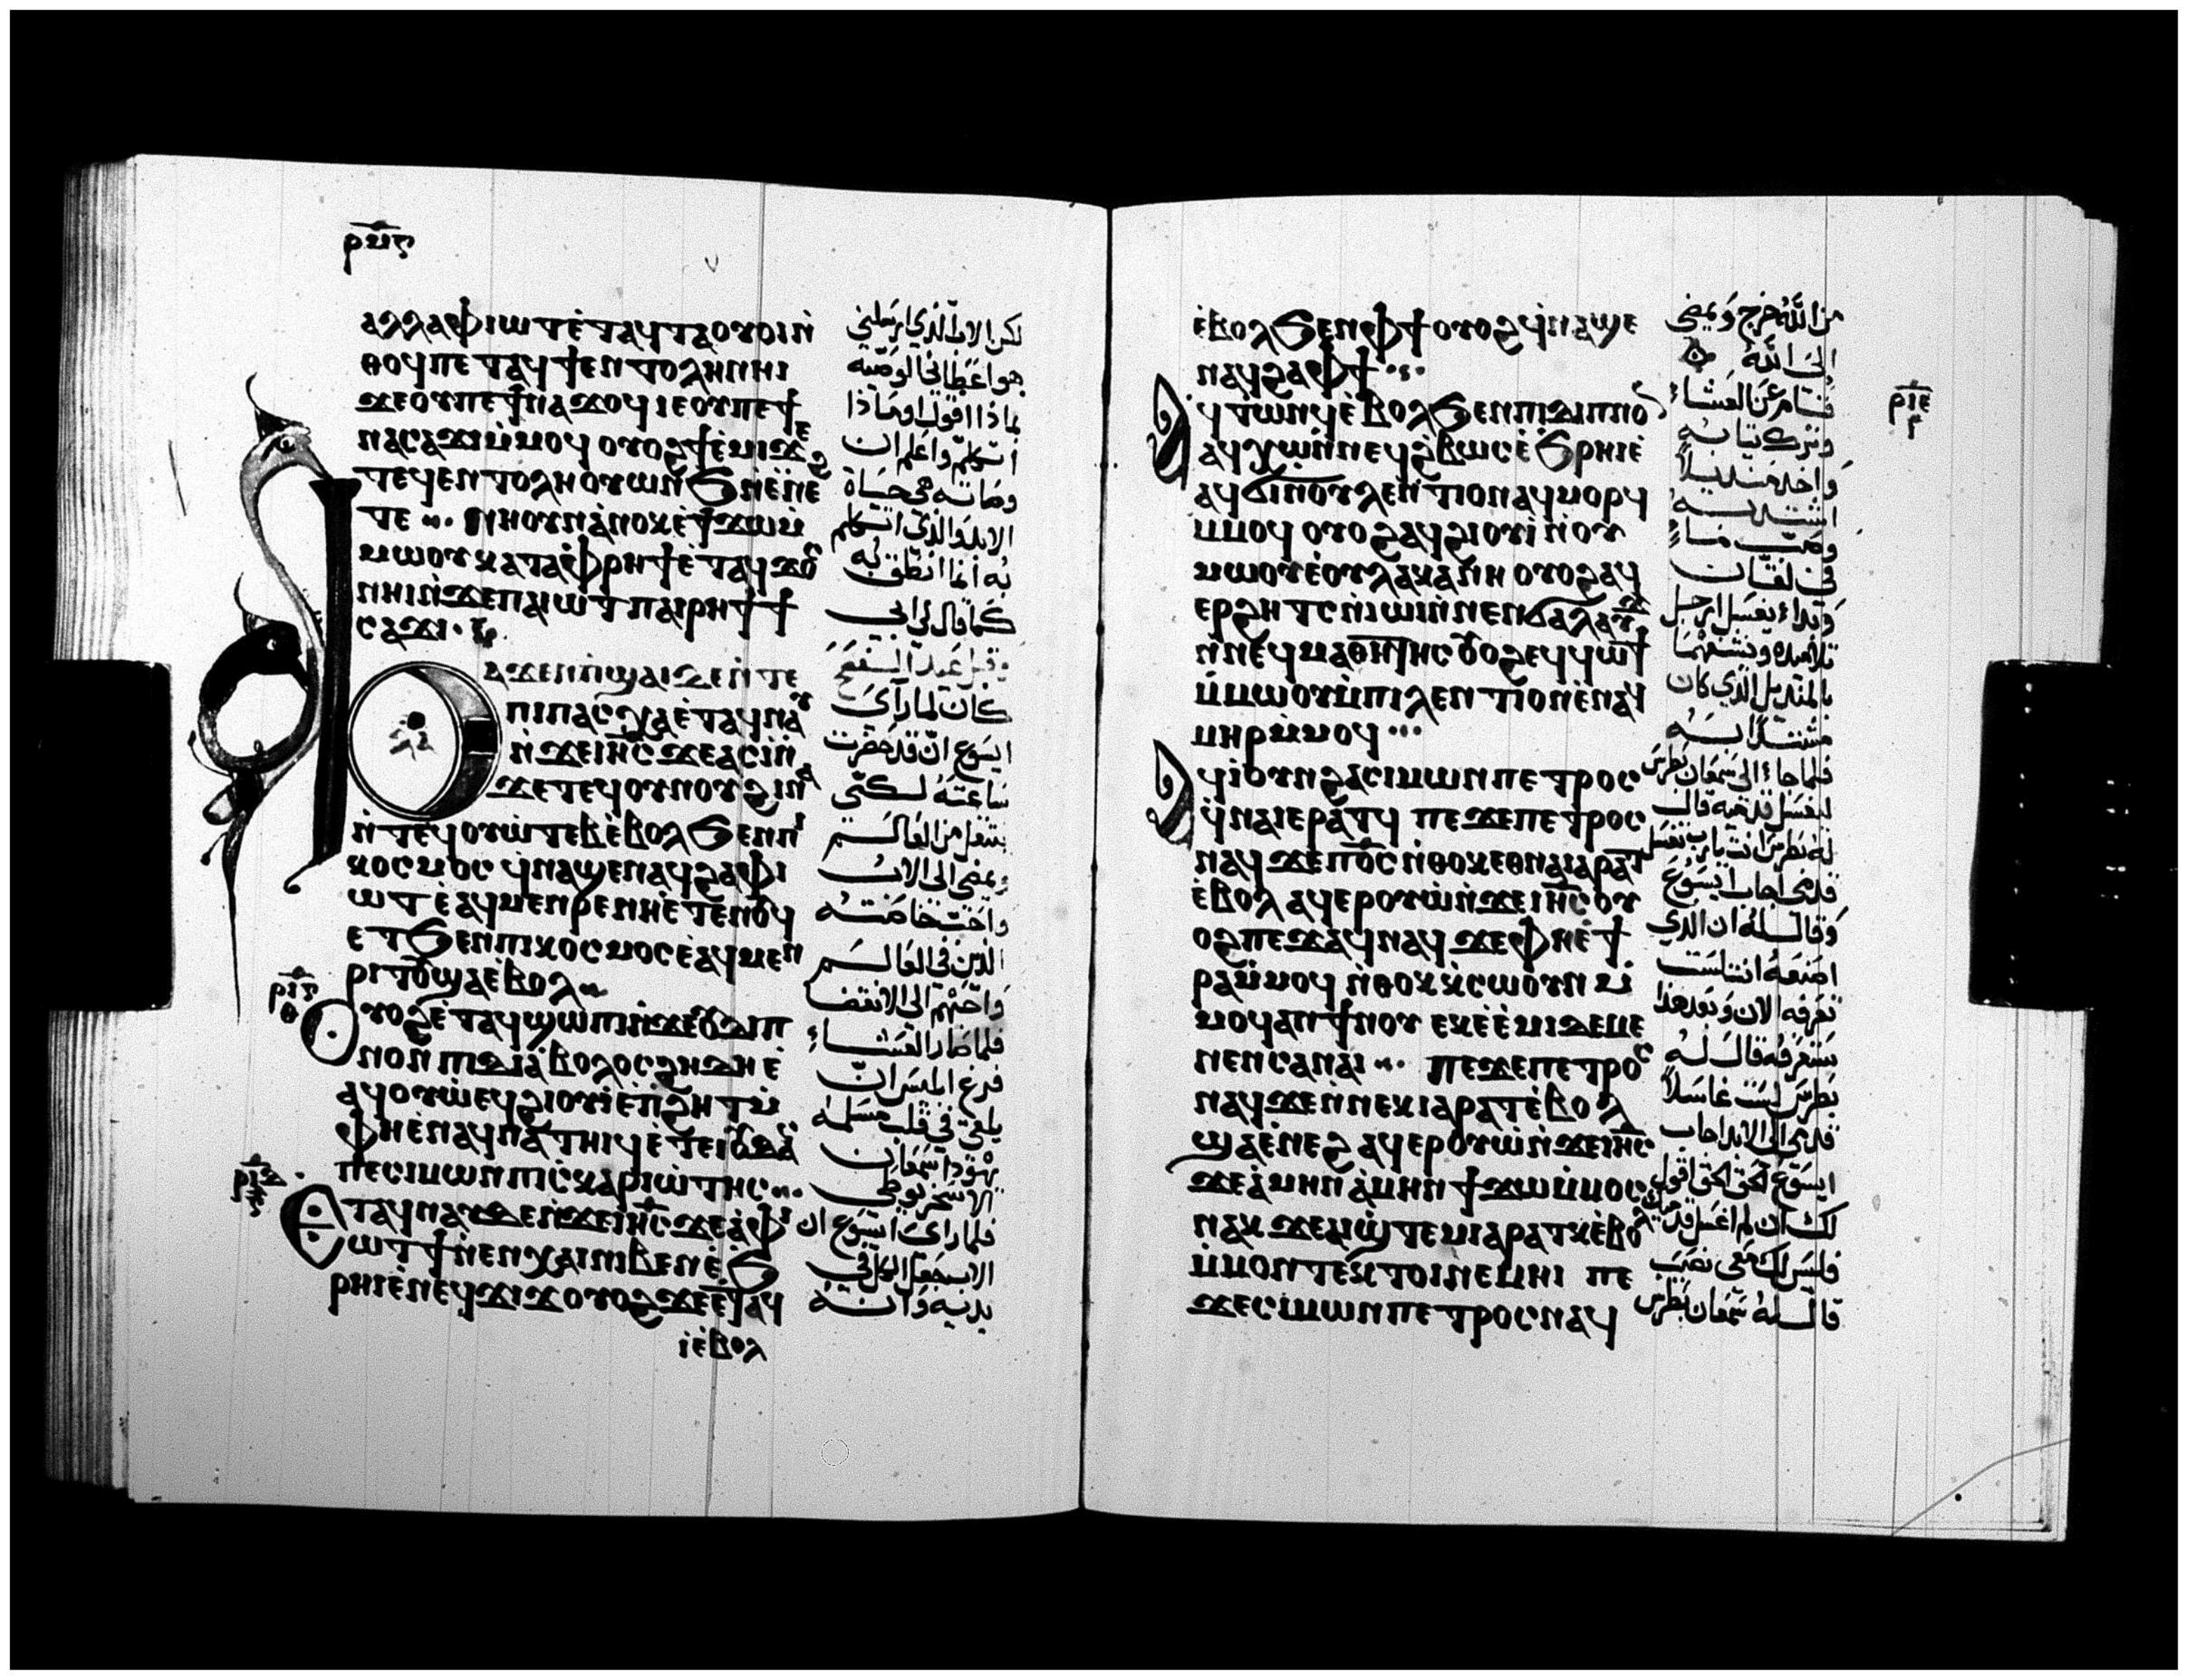 ⲣⲙⲋ
ⲁⲗⲗⲁⲫⲓⲱⲧⲉ̀ⲧⲁϥⲧⲁⲟⲩⲟⲓⲛ̀
ⲑⲟϥⲡⲉⲧⲁϥϯⲉⲛⲧⲟⲗⲏⲛⲏⲓ
ϫⲉⲟⲩⲡⲉϯⲛⲁϫⲟϥⲓⲉⲟⲩⲡⲉϯ
ⲛⲁⲥⲁϫⲓⲙ̀ⲙⲟϥ ⲟⲩⲟϩϯⲉ̀ⲙⲓϫⲉ
ⲧⲉϥⲉⲛⲧⲟⲗⲏⲟⲩⲱⲛϧⲛ̀ⲉ̀ⲛⲉϩ
ⲧⲉ ⲛⲏⲟⲩⲛⲁ̀ⲛⲟⲕⲉ̀ϯϫⲱⲙ̀
ⲙⲱⲟⲩⲕⲁⲧⲁⲫ̀ⲣⲏϯⲉ̀ⲧⲁϥϫⲟⲥ
ⲛⲏⲓⲛ̀ϫⲉⲡⲁⲓⲱⲧⲡⲁⲓⲣⲏϯϯ
ⲥⲁϫⲓ
ϧⲁϫⲉⲛⲡ̀ϣⲁⲓⲇⲉⲛ̀ⲧⲉ
ⲡⲓⲡⲁⲥⲭⲁⲉ̀ⲧⲁϥⲛⲁⲩ
ⲛ̀ϫⲉⲓⲏⲥϫⲉⲁⲥⲓ̀ⲛ̀
ϫⲉⲧⲉϥⲟⲩⲛⲟⲩϩⲓⲛⲁ
ⲛ̀ⲧⲉϥⲟⲩⲱ̀ⲧⲉⲃⲉ̀ⲃⲟⲗϧⲉⲛⲡⲓ
ⲕⲟⲥⲙⲟⲥ ϥⲛⲁϣⲉⲛⲁϥϩⲁⲫⲓ
ⲱⲧⲉ̀ⲁϥⲙⲉⲛⲣⲉⲛⲏⲉ̀ⲧⲉⲛⲟⲩϥ
ⲉⲧϧⲉⲛⲡⲓⲕⲟⲥⲙⲟⲥⲉ̀ⲁϥⲙⲉⲛ
ⲣⲓⲧⲟⲩϣⲁⲉ̀ⲃⲟⲗ
ⲣⲓⲅ
ⲑ
ⲟⲩⲟϩⲉ̀ⲧⲁϥϣⲱⲡⲓⲛ̀ϫⲉⲟⲩⲇⲓⲡ
ⲛⲟⲛ ⲡⲓⲇⲓⲁ̀ⲃⲟⲗⲟⲥϩⲏⲇⲏⲉ̀
ⲁϥⲟⲩⲱ̀ⲉϥϩⲓⲟⲩⲓ̀ⲉ̀ⲡ̀ϩⲏⲧⲙ̀
ⲫⲏⲉ̀ⲛⲁϥⲛⲁⲧⲏⲓϥⲉ̀ⲧⲉⲓⲟⲩⲇⲁⲥ
ⲡⲉⲥⲓⲙⲱⲛⲡⲓⲥ̀ⲕⲁⲣⲓⲱ̀ⲧⲏⲥ
ⲣⲓⲇ
ⲉⲧⲁϥⲛⲁⲩⲇⲉⲛ̀ϫⲉⲓⲏⲥϫⲉⲁ̀ⲫⲓ
ⲱⲧϯⲛ̀ⲉⲛⲭⲁⲓⲛⲓⲃⲉⲛⲉ̀ϧ
ⲣⲏⲓⲉ̀ⲛⲉϥϫⲓϫⲟⲩⲟϩϫⲉⲉ̀ⲧⲁϥ
ⲓ̀ⲉ̀ⲃⲟⲗ
لكن الاب الذي ارسلني
هو اعطاني الوصية
بماذا اقول او بماذا
اتكلم واعلم ان
وصاته هي حياة
الابد والذي اتكلم
به انا انطق به
كما قال لي ابي
وقبل عيد الفصح
كان لما رأى
ايسوع ان قد حضرت
ساعته لكي
ينتقل من العالم
ويمضي الى الاب
واحب خاصته
الذين في العالم
واحبهم الى الانقضا
فلما صار العشاء
فرغ ابليس ان
يلقي في قلب مسلمه
يهودا سمعان
الاسخريوطي
فلما راى ايسوع ان
الاب جعل الكل في
يديه وانه
ⲉ̀ⲃⲟⲗϧⲉⲛⲫϯⲟⲩⲟϩϥ̀ⲛⲁϣⲉ
ⲛⲁϥϩⲁⲫϯ
ⲁϥⲧⲱⲛϥⲉ̀ⲃⲟⲗϧⲉⲛⲡⲓⲇⲓⲡⲛⲟⲛ
ⲁϥⲭⲱⲛ̀ⲛⲉϥϩ̀ⲃⲱⲥⲉ̀ϧⲣⲏⲓⲉ̀
ⲁϥϭⲓⲛ̀ⲟⲩⲗⲉⲛⲧⲓⲟⲛⲁϥⲙⲟⲣϥ
ⲙ̀ⲙⲟϥ ⲟⲩⲟϩⲁϥϩⲓⲟⲩⲓ̀ⲛ̀ⲟⲩ
ⲙⲱⲟⲩⲉ̀ⲟⲩⲗⲁⲕⲁⲛⲏ ⲟⲩⲟϩⲁϥ
ⲉⲣϩⲏⲧⲥⲛ̀ⲓⲱⲓⲛ̀ⲛⲉⲛϭⲁⲗⲁⲩϫ
ⲛ̀ⲛⲉϥⲙⲁⲑⲏⲧⲏⲥⲟⲩⲟϩⲉϥϥⲱϯ
ⲙ̀ⲙⲱⲟⲩⲙ̀ⲡⲓⲗⲉⲛⲧⲓⲟⲛⲉ̀ⲛⲁϥ
ⲙⲏⲣⲙ̀ⲙⲟϥ
ⲣⲓⲉ
ⲁϥⲓ̀ⲟⲩⲛϩⲁⲥⲓⲙⲱⲛⲡⲉⲧⲣⲟⲥ
ϥ̀ⲛⲁⲓⲉⲣⲁⲧϥ ⲡⲉϫⲉⲡⲉⲧⲣⲟⲥ
ⲛⲁϥϫⲉⲡⲟⲥⲛ̀ⲑⲟⲕⲉⲑⲛⲁⲓⲁⲣⲁⲧ
ⲉ̀ⲃⲟⲗ ⲁϥⲉⲣⲟⲩⲱ̀ⲛ̀ϫⲉⲓⲏⲥⲟⲩ
ⲟϩⲡⲉϫⲁϥⲛⲁϥ ϫⲉⲫⲏⲉ̀ϯ
ⲣⲁⲙ̀ⲙⲟϥ ⲛ̀ⲑⲟⲕⲕ̀ⲥⲱⲟⲩⲛⲙ̀
ⲙⲟϥⲁⲛϯⲛⲟⲩ ⲉⲕⲉ̀ⲉ̀ⲙⲓⲇⲉⲙⲉ
ⲛⲉⲛⲥⲁⲛⲁⲓ ⲡⲉϫⲉⲡⲉⲧⲣⲟⲥ
ⲛⲁϥϫⲉⲛ̀ⲛⲉⲕⲓⲁⲣⲁⲧⲉ̀ⲃⲟⲗ
ϣⲁⲉ̀ⲛⲉϩ ⲁϥⲉⲣⲟⲩⲱ̀ⲛ̀ϫⲉⲓⲏⲥ
ϫⲉⲁ̀ⲙⲏⲛⲁ̀ⲙⲏⲛϯϫⲱⲙ̀ⲙⲟⲥ
ⲛⲁⲕ ϫⲉⲁⲓϣ̀ⲧⲉⲙⲓⲁⲣⲁⲧⲕⲉ̀ⲃⲟⲗ
ⲙ̀ⲙⲟⲛⲧⲉⲕⲧⲟⲓⲛⲉⲙⲏⲓ ⲡⲉ
ϫⲉⲥⲓⲙⲱⲛⲡⲉⲧⲣⲟⲥⲛⲁϥ
من الله خرج ويمضي
الى الله
قام عن العشاء
وترك ثيابه
واخذ منديلاً
اشتد به
وصب ماءً
في لقان
وبداء يغسل ارجل
تلاميذه وينشفهما
بالمنديل الذي كان
مشتدًا به
فلما جاء الى سمعان بطرس
ليغسل قدميه قال
له بطرس انت يارب تغسل
قدمي اجاب ايسوع
وقال له ان الذي
اصنعه انت لست
تعرفه الان وبعد هذا
ستعرفه قال له
بطرس لست غاسلاً
قدمي الى الابد اجاب
ايسوع الحق الحق اقول
لك ان لم اغسل قدميك
فليس لك معي نصيب
قال له سمعان بطرس